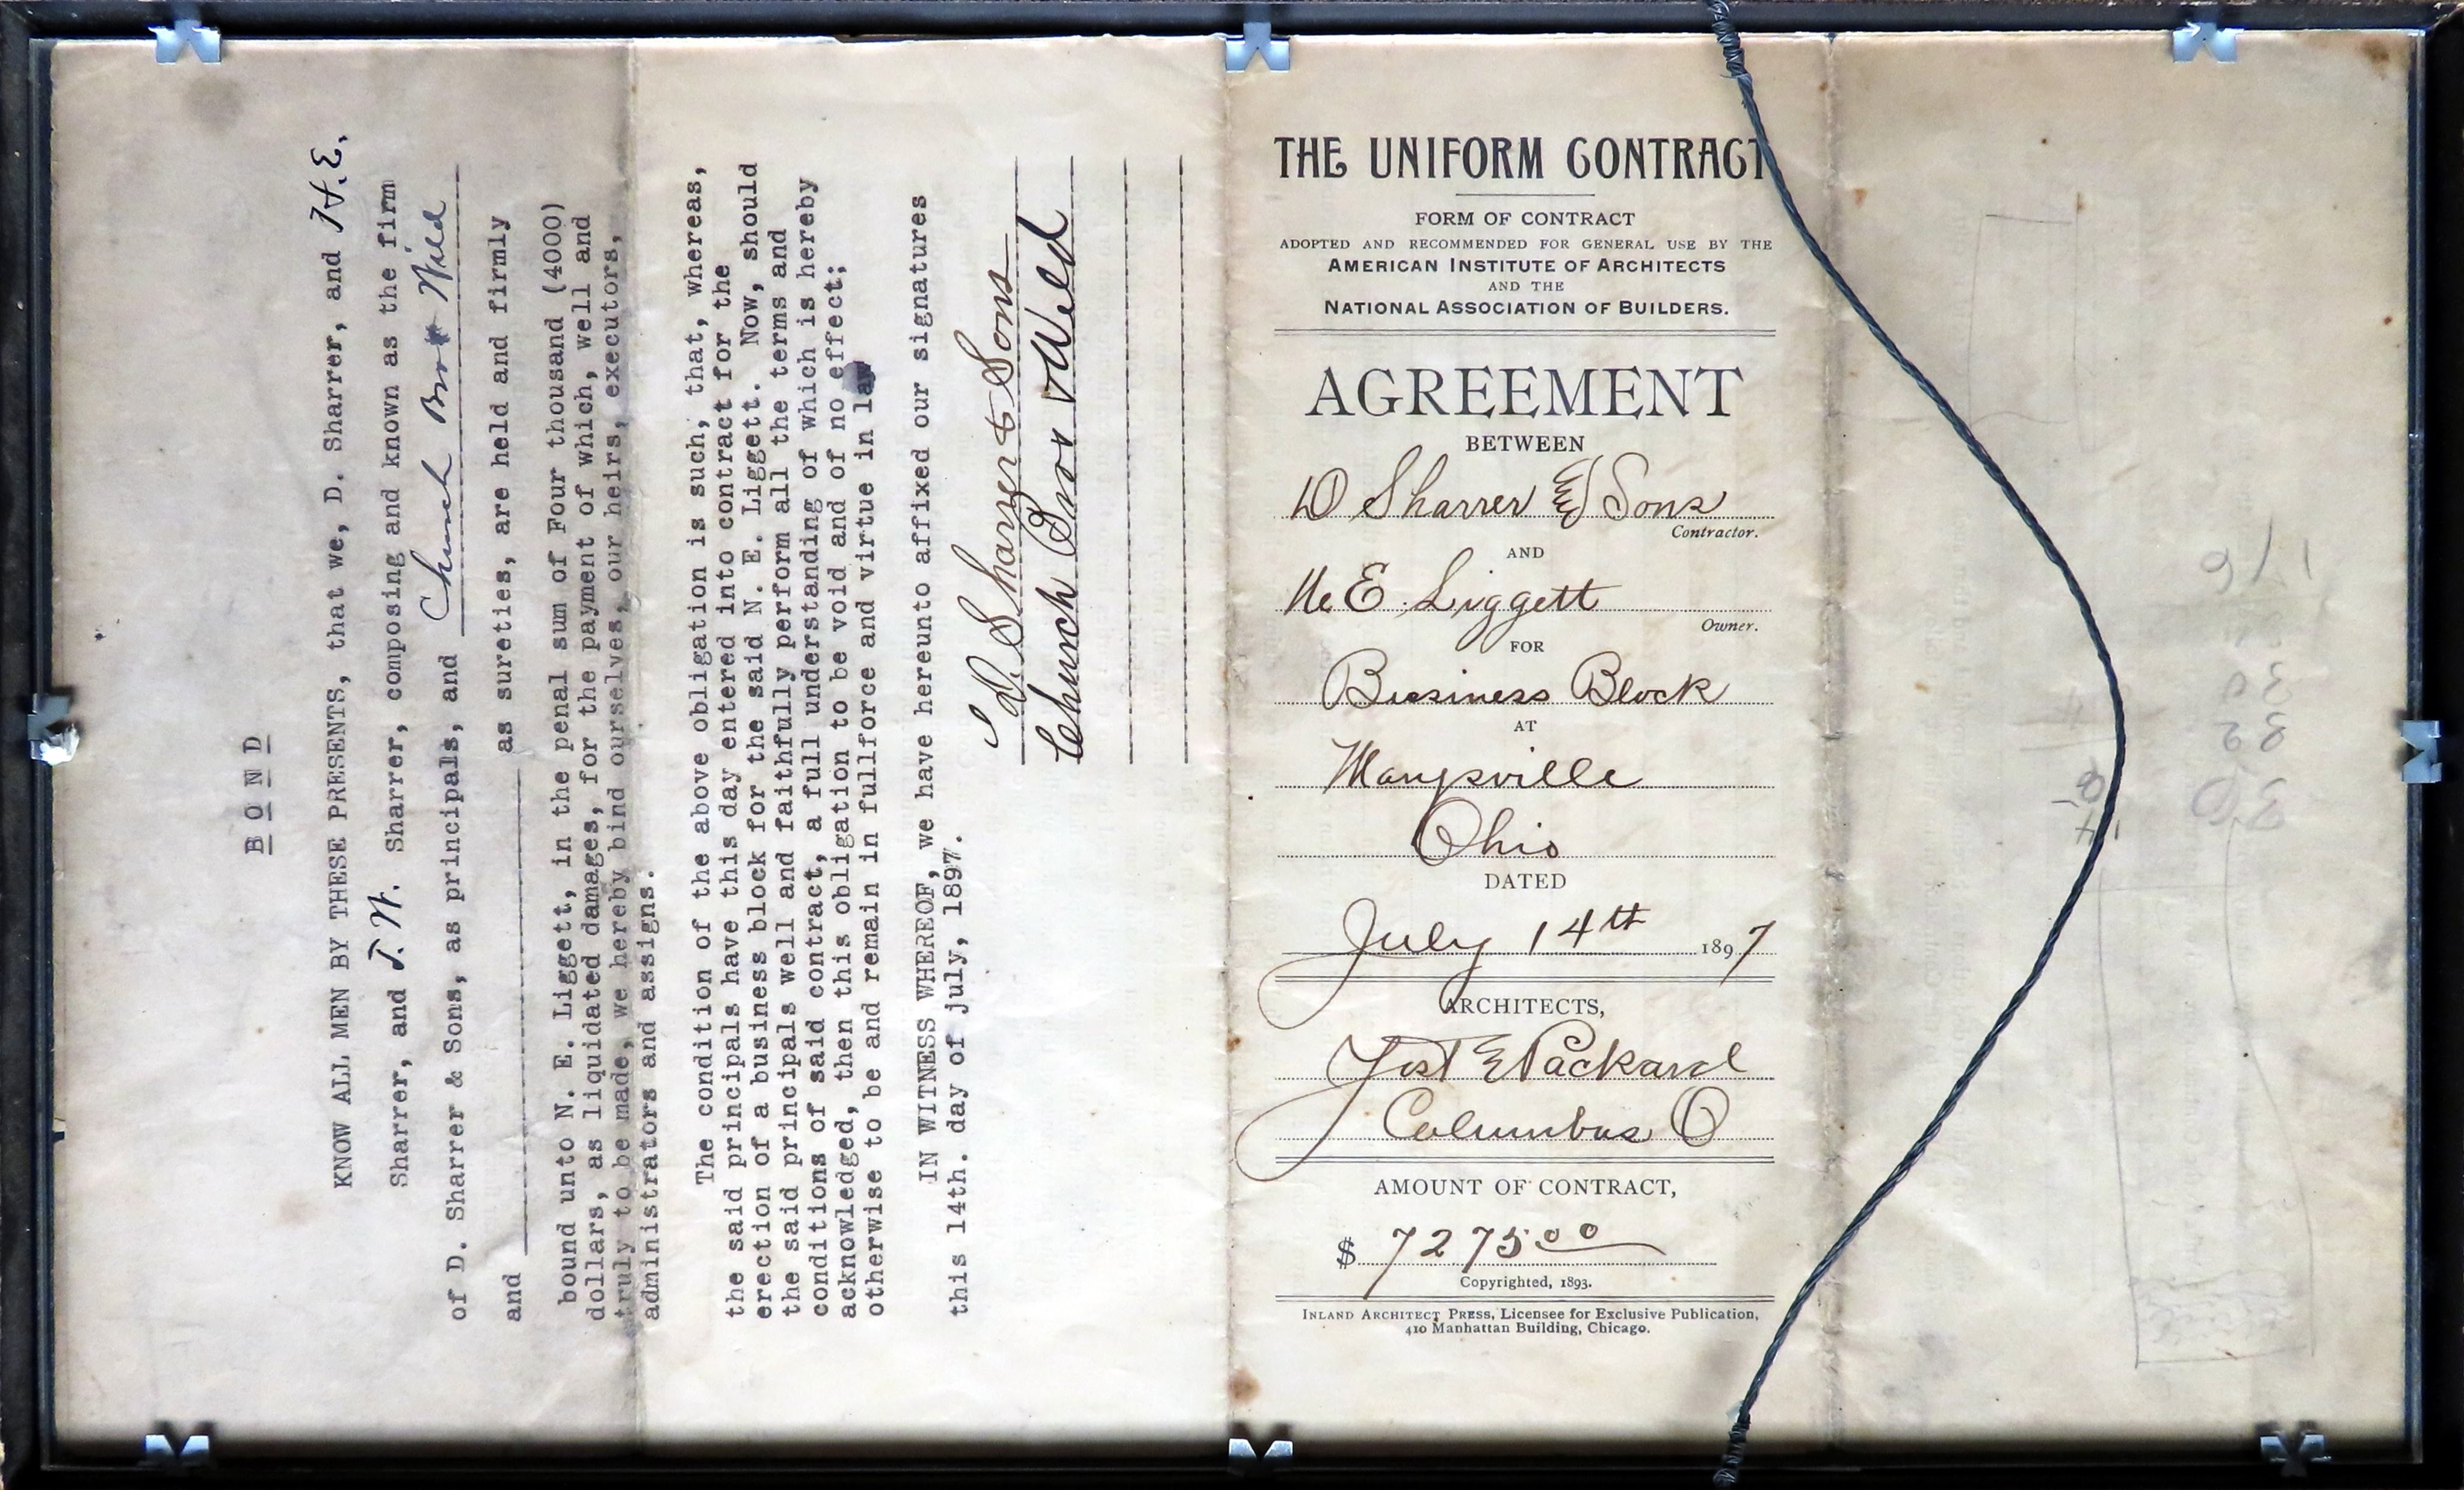 B O N D
KNOW ALL MEN BY THESE PRESENTS, that we, D. Sharrer, and H.E.
Sharrer, and J.W. Sharrer, composing and known as the firm
of D. Sharrer & Sons, as principals, and Church Bros Wild
and as sureties, are held and firmly
bound unto N. E. Liggett, in the penal sum of Four thousand (4000)
dollars, as liquidated damages, for the payment of which, well and
truly to be made, we hereby bind ourselves, our heirs, executors,
administrators and assigns.
The condition of the above obligation is such; that, whereas,
the said principals have this day entered into contract for the
erection of a business block for the said N. E. Liggett. Now, should
the said principals well and faithfully perform all the terms and
conditions of said contract, a full understanding of which is hereby
acknowledged, then this obligation to be void and of no effect;
otherwise to be and remain in fullforce and virtue in law
IN WITNESS WHEREOF, we have hereunto affixed our signatures
this 14th. day of july, 1897.
D. Sharrer & Sons
Church Bros Wild
THE UNIFORM CONTRACT
FORM OF CONTRACT
ADOPTED AND RECOMMENDED FOR GENERAL USE BY THE
AMERICAN INSTITUTE OF ARCHITECTS
AND THE
NATIONAL ASSOCIATION OF BUILDERS.
AGREEMENT
BETWEEN
D Sharrer & Sons
Contractor.
AND
N. E. Liggett
Owner.
FOR
Business Block
AT
Marysville
Ohio
DATED
July 14th 1897
ARCHITECTS,
Yost & Packard
Columbus O
AMOUNT OF CONTRACT,
$ 7275 00
Copyrighted, 1893.
INLAND ARCHITECT PRESS, Licensee for Exclusive Publication,
410 Manhattan Building, Chicago.